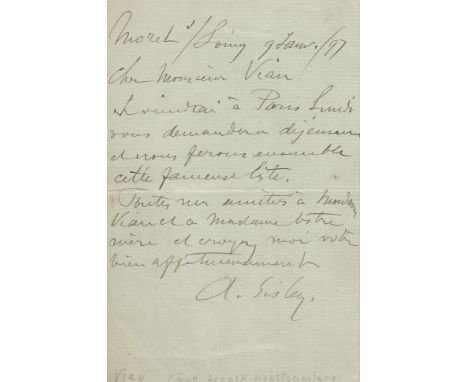 Moret s/Loing 9 Janv./97
Cher Monsieur Viau
Je viendrai à Paris lundi
vous demander à déjeuner
et nous ferons ensemble
cette fameuse liste.
Toutes mes amitiés à Madame
Viau et à Madame votre
mère et croyez moi votre
bien affectueusement
A. Sisley.
Viau känd fransk konstsamlare